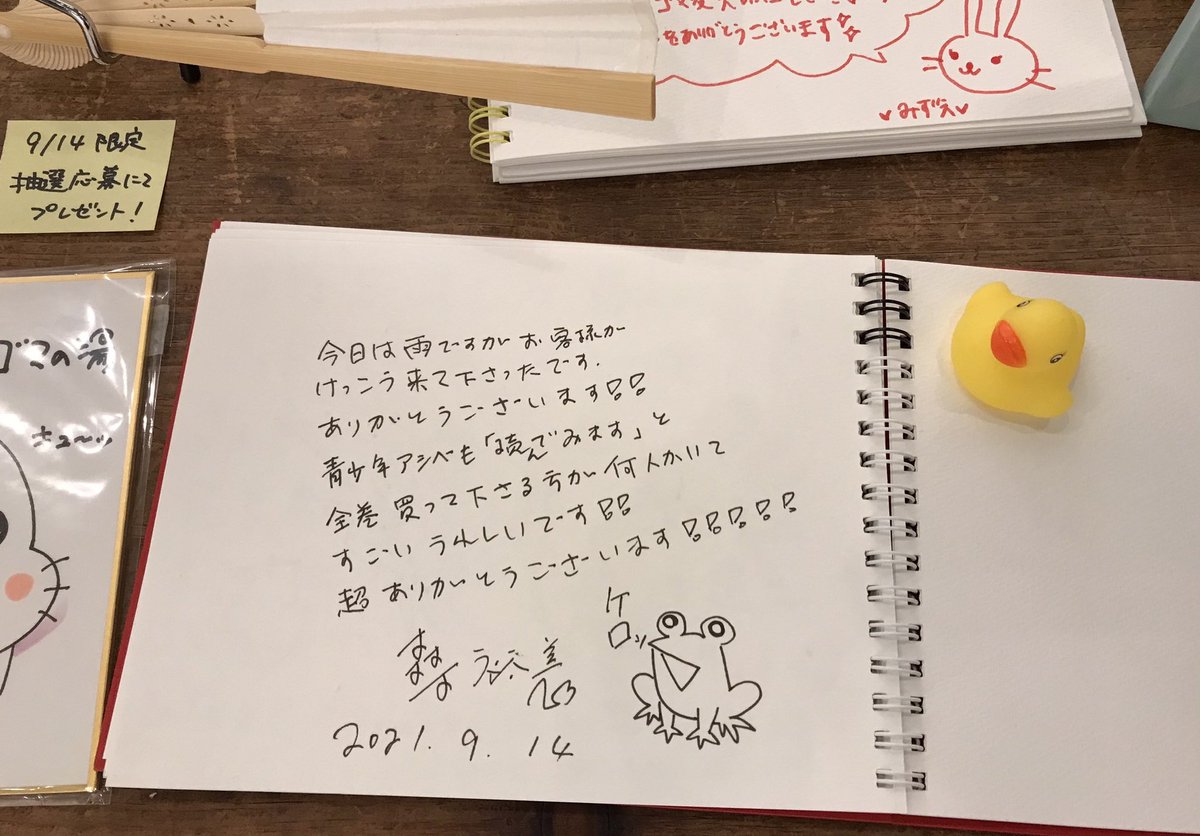 をありがとうございます
みずえ
9/14 限定
抽選応募にて
プレゼント!
ゴマの湯
キューッ
今日は雨ですがお客様が
けっこう来て下さったです.
ありがとうございます!!
青少年アシベも「読んでみます」と
全巻買って下さる方が何人かいて
すごいうれしいです!!
超ありがとうございます!!!!!
ケロッ
森裕美
2021. 9. 14